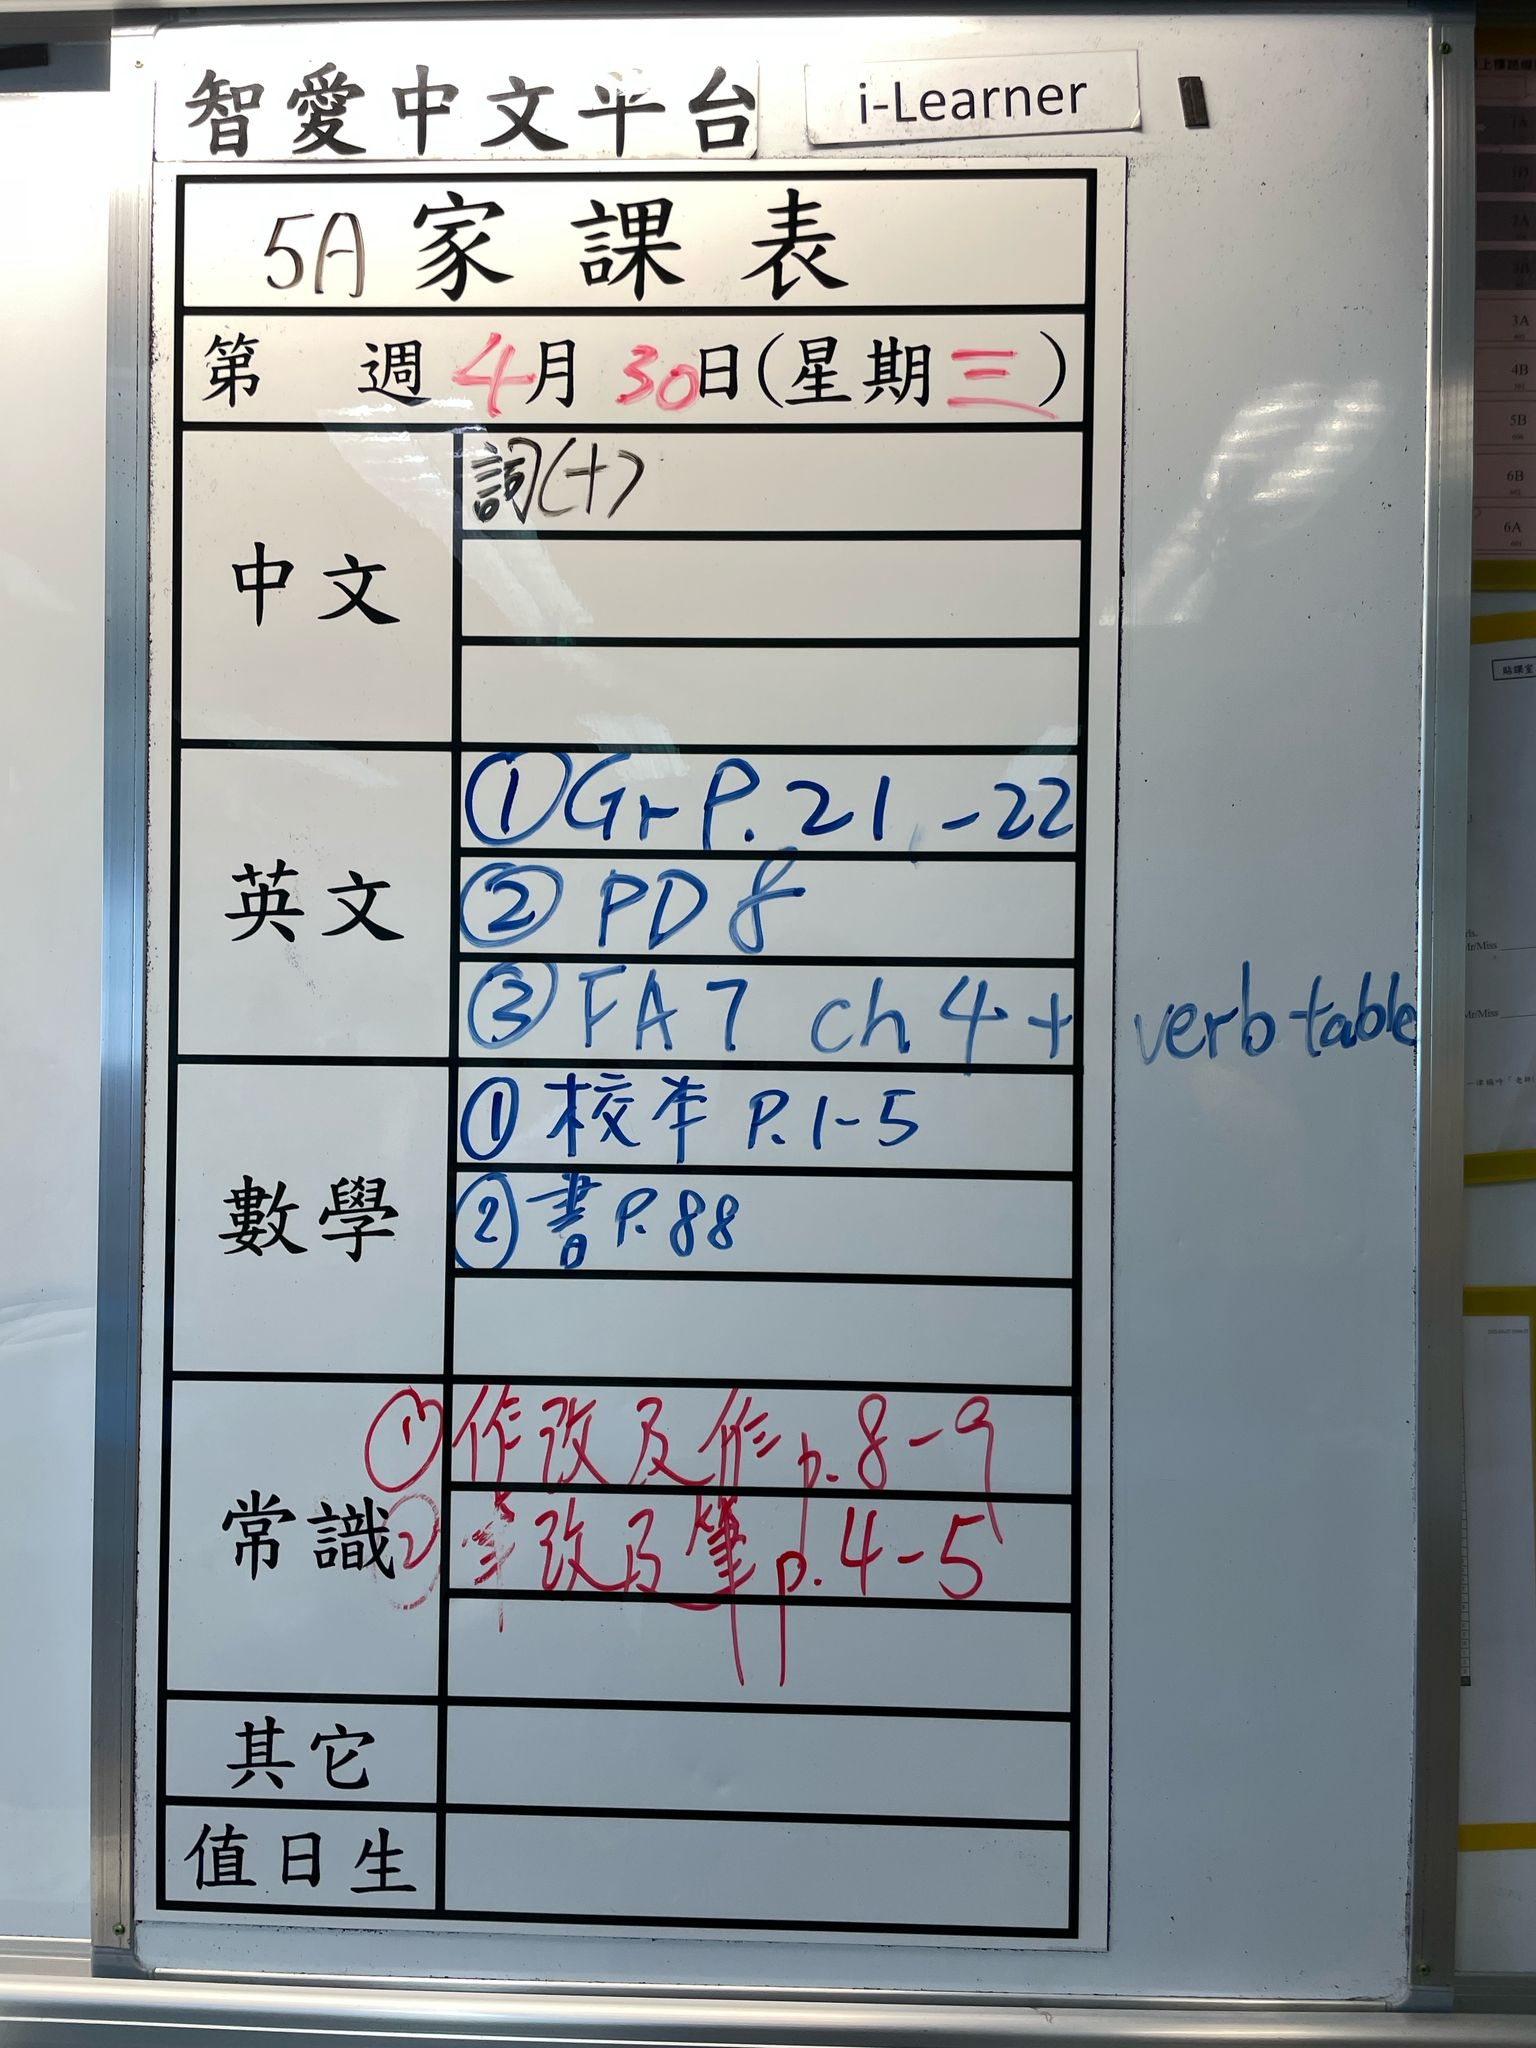 智愛中文平台 i-Learner
5A家課表
第 週 4月30日(星期三)
中文
詞(十)
英文
①Gr P.21-22
②PD 8
③FA7 ch 4 + verb table
數學
①校本 P.1-5
②書P.88
常識
①作改及作 p.8-9
②筆改及筆 p.4-5
其它
值日生
3A
4B
5B
6B
6A
貼課室
Mr/Miss
Mr/Miss